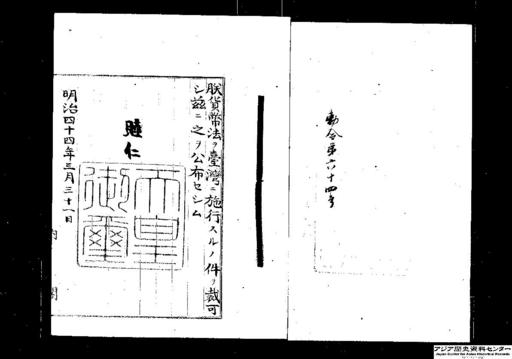 勅令第六十四号
朕貨幣法ヲ臺灣ニ施行スルノ件ヲ裁可
シ茲ニ之ヲ公布セシム
睦仁
天皇御璽
明治四十四年三月三十一日
内閣
アジア歴史資料センター
Japan Center for Asian Historical Records